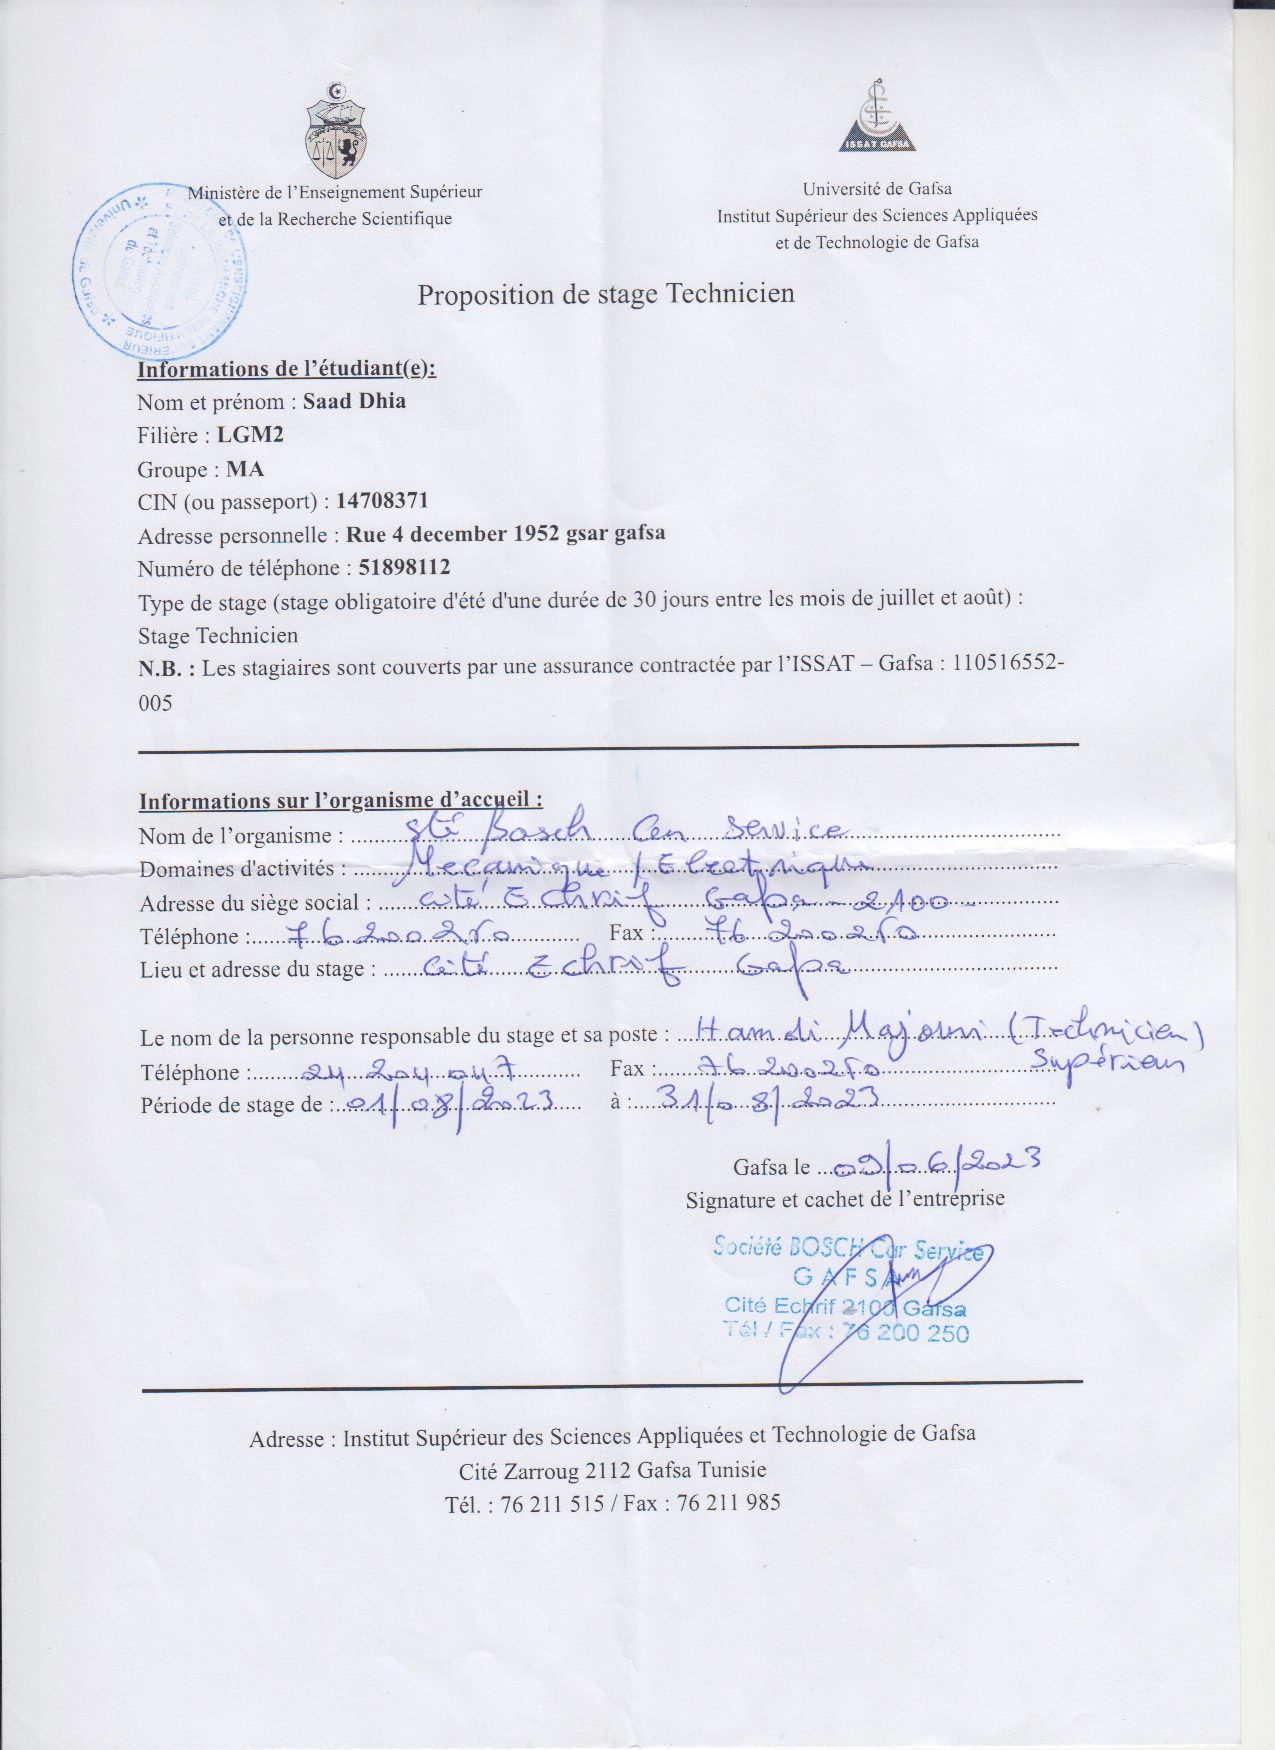 ISSAT GAFSA
Ministère de l'Enseignement Supérieur
et de la Recherche Scientifique
Université de Gafsa
Institut Supérieur des Sciences Appliquées
et de Technologie de Gafsa
Proposition de stage Technicien
Informations de l'étudiant(e):
Nom et prénom : Saad Dhia
Filière : LGM2
Groupe : MA
CIN (ou passeport) : 14708371
Adresse personnelle : Rue 4 december 1952 gsar gafsa
Numéro de téléphone : 51898112
Type de stage (stage obligatoire d'été d'une durée de 30 jours entre les mois de juillet et août) :
Stage Technicien
N.B. : Les stagiaires sont couverts par une assurance contractée par l'ISSAT – Gafsa : 110516552-
005
Informations sur l'organisme d'accueil :
Nom de l'organisme : Sté Bosch Car Service
Domaines d'activités : Mecanique / Electrique
Adresse du siège social : Cité Echrif Gafsa - 2100 -
Téléphone : 76 200 250 Fax : 76 200 250
Lieu et adresse du stage : Cité Echrif Gafsa
Le nom de la personne responsable du stage et sa poste : Hamdi (Technicien)
Supérieur
Téléphone : 24 204 047 Fax : 76 200 250
Période de stage de : 01/08/2023 à : 31/08/2023
Gafsa le 09/06/2023
Signature et cachet de l'entreprise
Société BOSCH Car Service
GAFSA
Cité Echrif 2100 Gafsa
Tél / Fax : 76 200 250
Adresse : Institut Supérieur des Sciences Appliquées et Technologie de Gafsa
Cité Zarroug 2112 Gafsa Tunisie
Tél. : 76 211 515 / Fax : 76 211 985